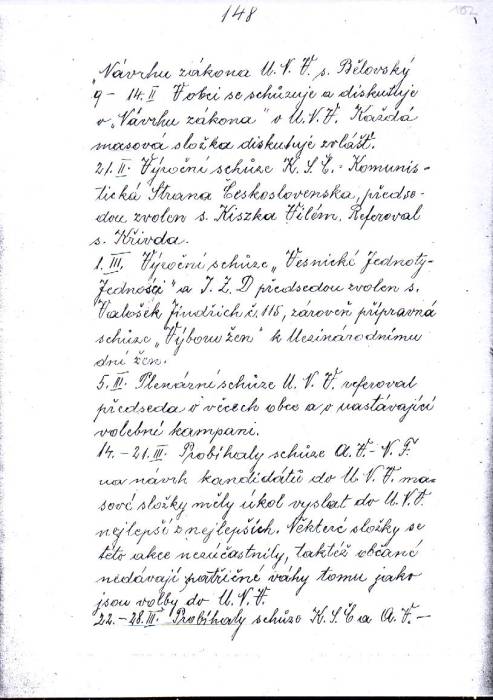 148
102
„Návrhu zákona M.N.V. s. Bělovský
9 - 14.II V obci se schůzuje a diskutuje
o „Návrhu zákona" o M.N.V. Každá
masová složka diskutuje zvlášť.
21.II. Výroční schůze K.S.Č. - Komunis-
tická Strana Československa, předse-
dou zvolen s. Kiszka Vilém. Referoval
s. Křivda.
1.III. Výroční schůze „Vesnické Jednoty-
Jednosti" a J.Z.D předsedou zvolen s.
Valošek Jindřich č. 115, zároveň přípravná
schůze „Výboru žen" k Mezinárodnímu
dni žen.
5.III. Plenární schůze M.N.V. referoval
předseda o věcech obce a o nastávající
volební kampani.
14. - 21.III. Probíhaly schůze A.V. - N.F.
na návrh kandidátů do M.N.V. ma-
sové složky měly úkol vyslat do M.N.V.
nejlepší z nejlepších. Některé složky se
této akce nezúčastnily, taktéž občané
nedávají patřičné váhy tomu jako
jsou volby do M.N.V.
22. - 28.III. Probíhaly schůze K.S.Č a A.V. -